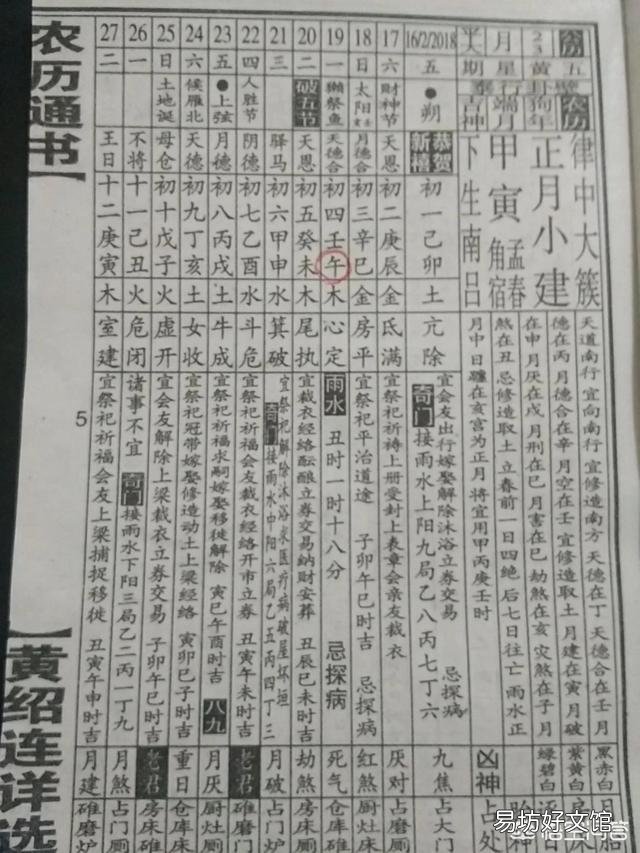 农历通书
黄绍连详选
5
公历
月
五黄星期
农历
狗年
端月
吉神
律中大簇
正月小建
甲寅
孟春
角宿
下生南吕
天道南行 宜向南行 宜修造南方 天德在丁 天德合在壬 月
德在丙 月德合在辛 月空在壬 宜修造取土 月建在寅 月破
在申 月厌在戌 月刑在巳 月害在巳 劫煞在亥 灾煞在子 月
煞在丑 忌修造取土 立春前一日四绝 后七日往亡 雨水正
月中日躔在亥宫为正月将 宜用甲丙庚壬时
黑赤白
紫黄白
绿碧白
凶神
占处
16/2/2018 五 ●朔 恭贺新禧 初一己卯 土 亢 除 宜会友出行嫁娶解除沐浴立券交易 忌探病 奇门 接雨水上阳九局乙八丙七丁六 九焦 占大门
17 六 财神节 天恩 初二庚辰 金 氐 满 宜祭祀祈祷上册受封上表章会亲友裁衣 厌对
18 日 太阳 月德合 初三辛巳 金 房 平 宜祭祀平治道途 子卯午巳时吉 忌探病 红煞
19 一 獭祭鱼 天德合 初四壬午 木 心 定 雨水 丑时一时十八分 忌探病 死气
20 二 破五节 天恩 初五癸未 木 尾 执 宜裁衣经络酝酿立券交易纳财安葬 丑辰巳未时吉 劫煞
21 三 驿马 初六甲申 水 箕 破 宜祭祀解除沐浴求医疗病破屋坏垣 奇门 接雨水中阳六局乙五丙四丁三 月破
22 四 人胜节 阴德 初七乙酉 水 斗 危 宜祭祀祈福会友裁衣经络开市立券 丑寅午未时吉 老君
23 五 ●上弦 月德 初八丙戌 土 牛 成 宜祭祀祈福求嗣嫁娶移徙解除 寅巳午酉时吉 八九 月厌 厨灶
24 六 候雁北 天德 初九丁亥 土 女 收 宜祭祀冠带嫁娶修造动土上梁经络 寅卯巳子时吉 重日 仓库床
25 日 土地诞 母仓 初十戊子 火 虚 开 宜会友解除上梁裁衣立券交易 子卯午巳时吉 老君 房床碓
26 一 不将 十一己丑 火 危 闭 诸事不宜 奇门 接雨水下阳三局乙二丙一丁九 月煞 占门厕
27 二 王日 十二庚寅 木 室 建 宜祭祀祈福会友上梁捕捉移徙 丑寅午申时吉 月建 碓磨炉
易坊好文馆